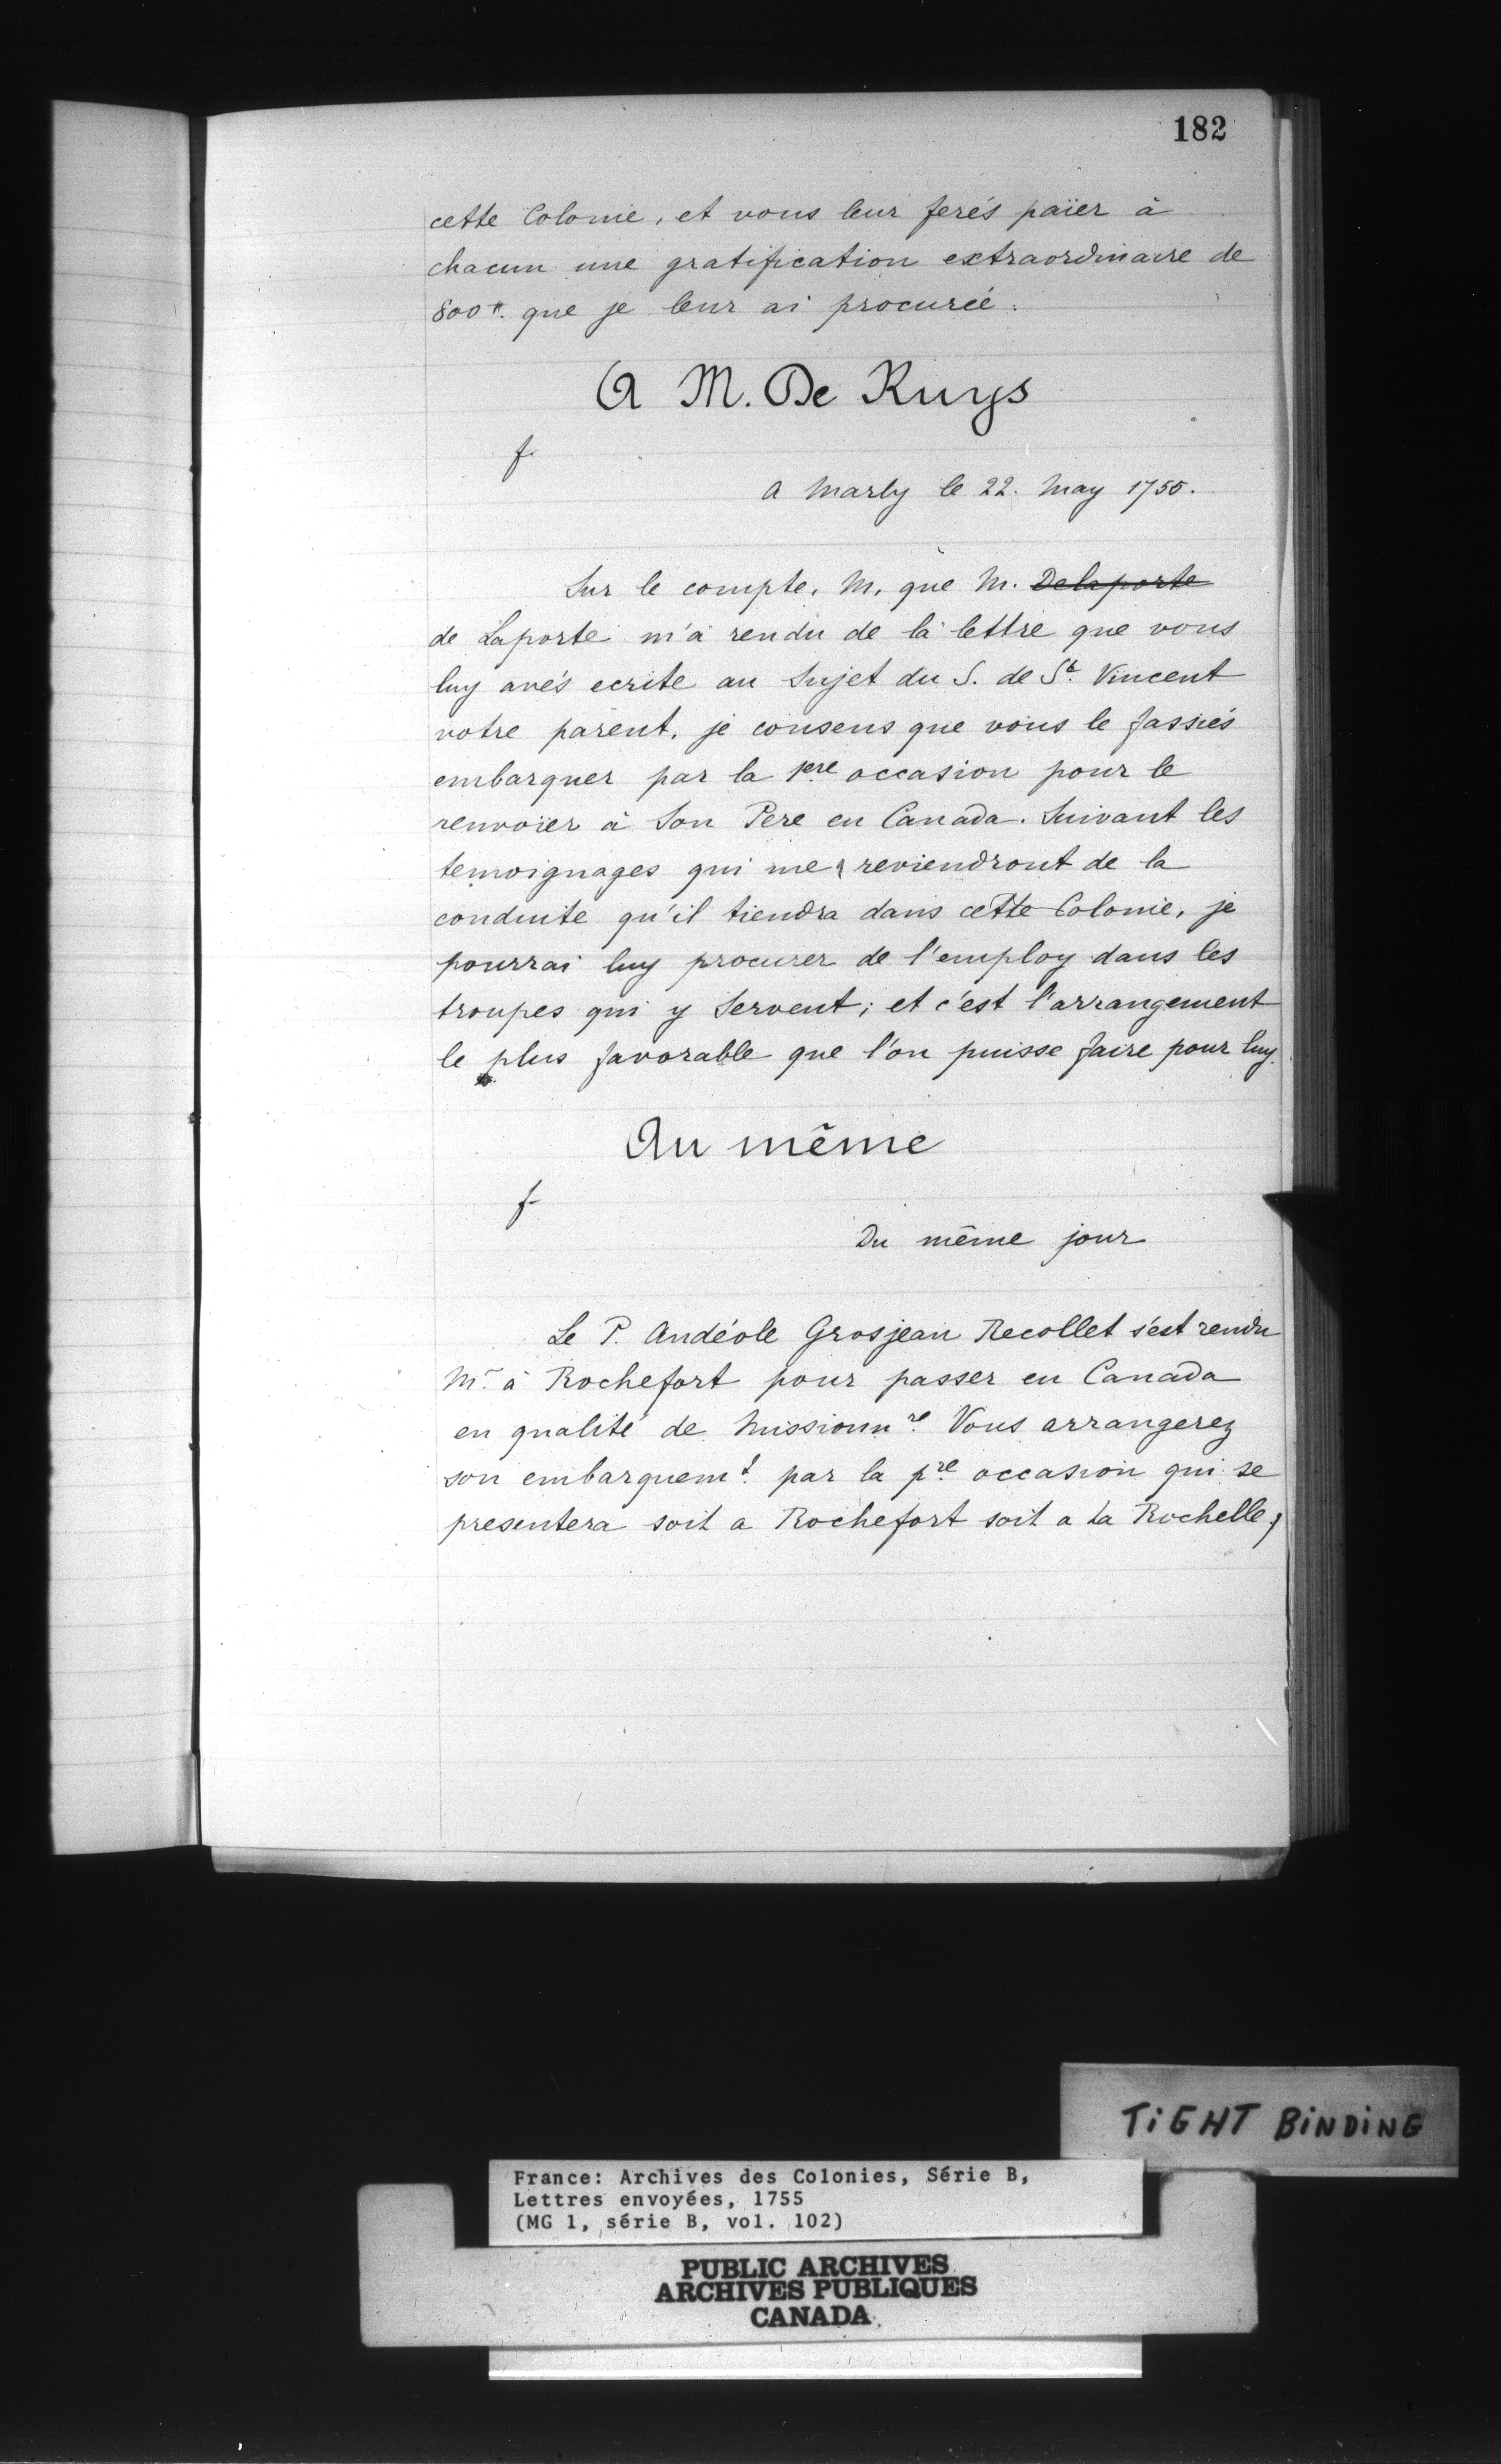 182
cette Colonie, et vous leur ferés païer à
chacun une gratification extraordinaire de
800ᵗᵗ. que je leur ai procurée.
A M. De Ruys
f.
A Marly le 22. May 1755.
Sur le compte, M, que M. Delaporte
de Laporte m'a rendu de la lettre que vous
luy avés ecrite au Sujet du S. de Sᵗ. Vincent
votre parent, je consens que vous le fassiés
embarquer par la 1ere occasion pour le
renvoïer à Son Pere en Canada. Suivant les
temoignages qui me reviendront de la
conduite qu'il tiendra dans cette Colonie, je
pourrai luy procurer de l'employ dans les
troupes qui y Servent; et c'est l'arrangement
le plus favorable que l'on puisse faire pour luy.
Au même
f
Du même jour
Le P. Andéole Grosjean Recollet s'est rendu
Mʳ. à Rochefort pour passer en Canada
en qualité de Missionnʳᵉ. Vous arrangerez
son embarquemᵗ. par la pʳᵉ occasion qui se
presentera soit a Rochefort soit a La Rochelle,
TiGHT BiNDiNG
France: Archives des Colonies, Série B,
Lettres envoyées, 1755
(MG 1, série B, vol. 102)
PUBLIC ARCHIVES
ARCHIVES PUBLIQUES
CANADA